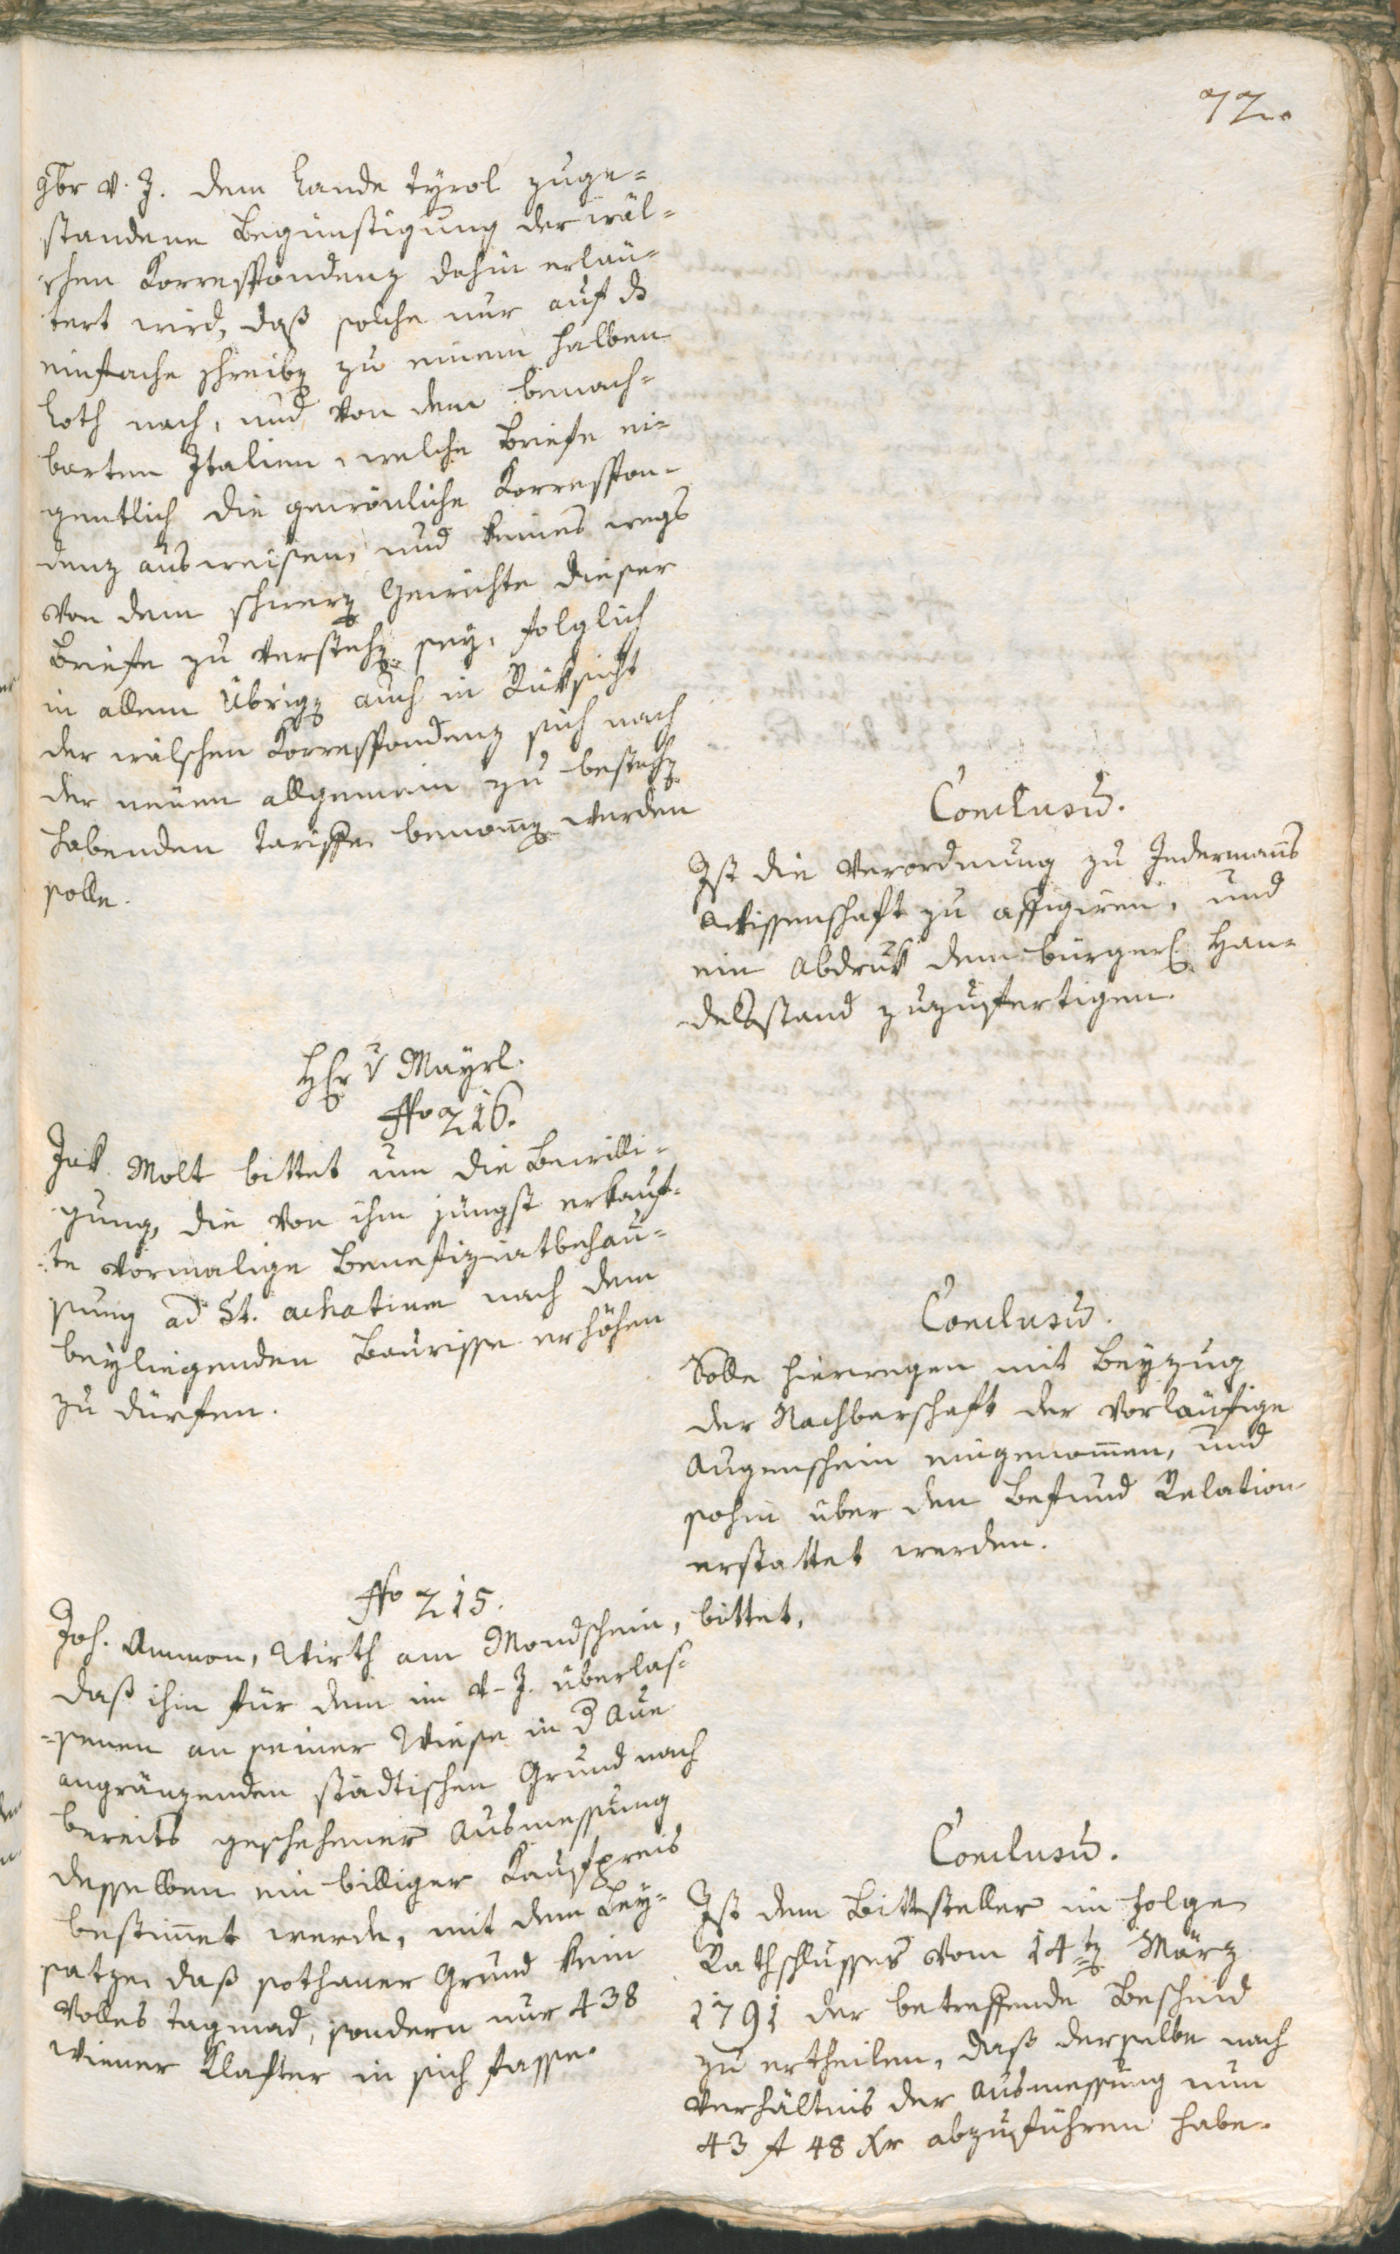 72.
9br v. J. dem Lande Tyrol zuge=
standene Begünstigung der wäl=
schen Korrespondenz dahin erläu=
tert wird, daß solche nur auf d
einfache schreibg zu einem halben
Loth nach, und von dem benach=
barten Italien, welche Briefe ei=
gentlich die gewönliche Korrespon=
denz ausweisen, und keines wegs
von dem schwerg Gewichte dieser
Briefe zu verstehg sey, folglich
in allem übrigg auch in Rüksicht
der wälschen Korrespondenz sich nach
der neuen allgemein zu bestehg
habenden Tariffe benomg werden
solle.
Conclusū.
Ist die Verordnung zu Jedermans
Wissenschaft zu affigiren, und
ein Abdruk dem bürgerl. Han=
delsstand zuzufertigen.
Hr v Mayrl.
No 216.
Jak. Molt bittet um die Bewilli=
gung, die von ihm jüngst erkauf=
te vormalige Benefiziatbehau=
sung ad St. Achatium nach dem
beyliegenden Baurisse erhöhen
zu dürfen.
Conclusū.
Solle hierwegen mit Beyzug
der Nachbarschaft der vorläufige
Augenschein eingenommen, und
sohin über den Befund Relation
erstattet werden.
No 215.
Joh. Ammon, Wirth am Mondschein, bittet,
daß ihm für dem im v. J. überlas=
=senen an seiner Wiese in d Aue
angränzenden städtischen Grund nach
bereits geschehener Ausmessung
desselben ein billiger Kaufpreis
bestimmet werde, mit dem Bey=
satze, daß sothaner Grund kein
volles Tagmad, sondern nur 438
Wiener Klafter in sich fasse.
Conclusū.
Ist dem Bittsteller im Folge
Rathschlusses vom 14tg März
1791 der betreffende Bescheid
zu ertheilen, daß derselbe nach
Verhältnis der Ausmessung nun
43 f 48 Xr abzuführen habe.